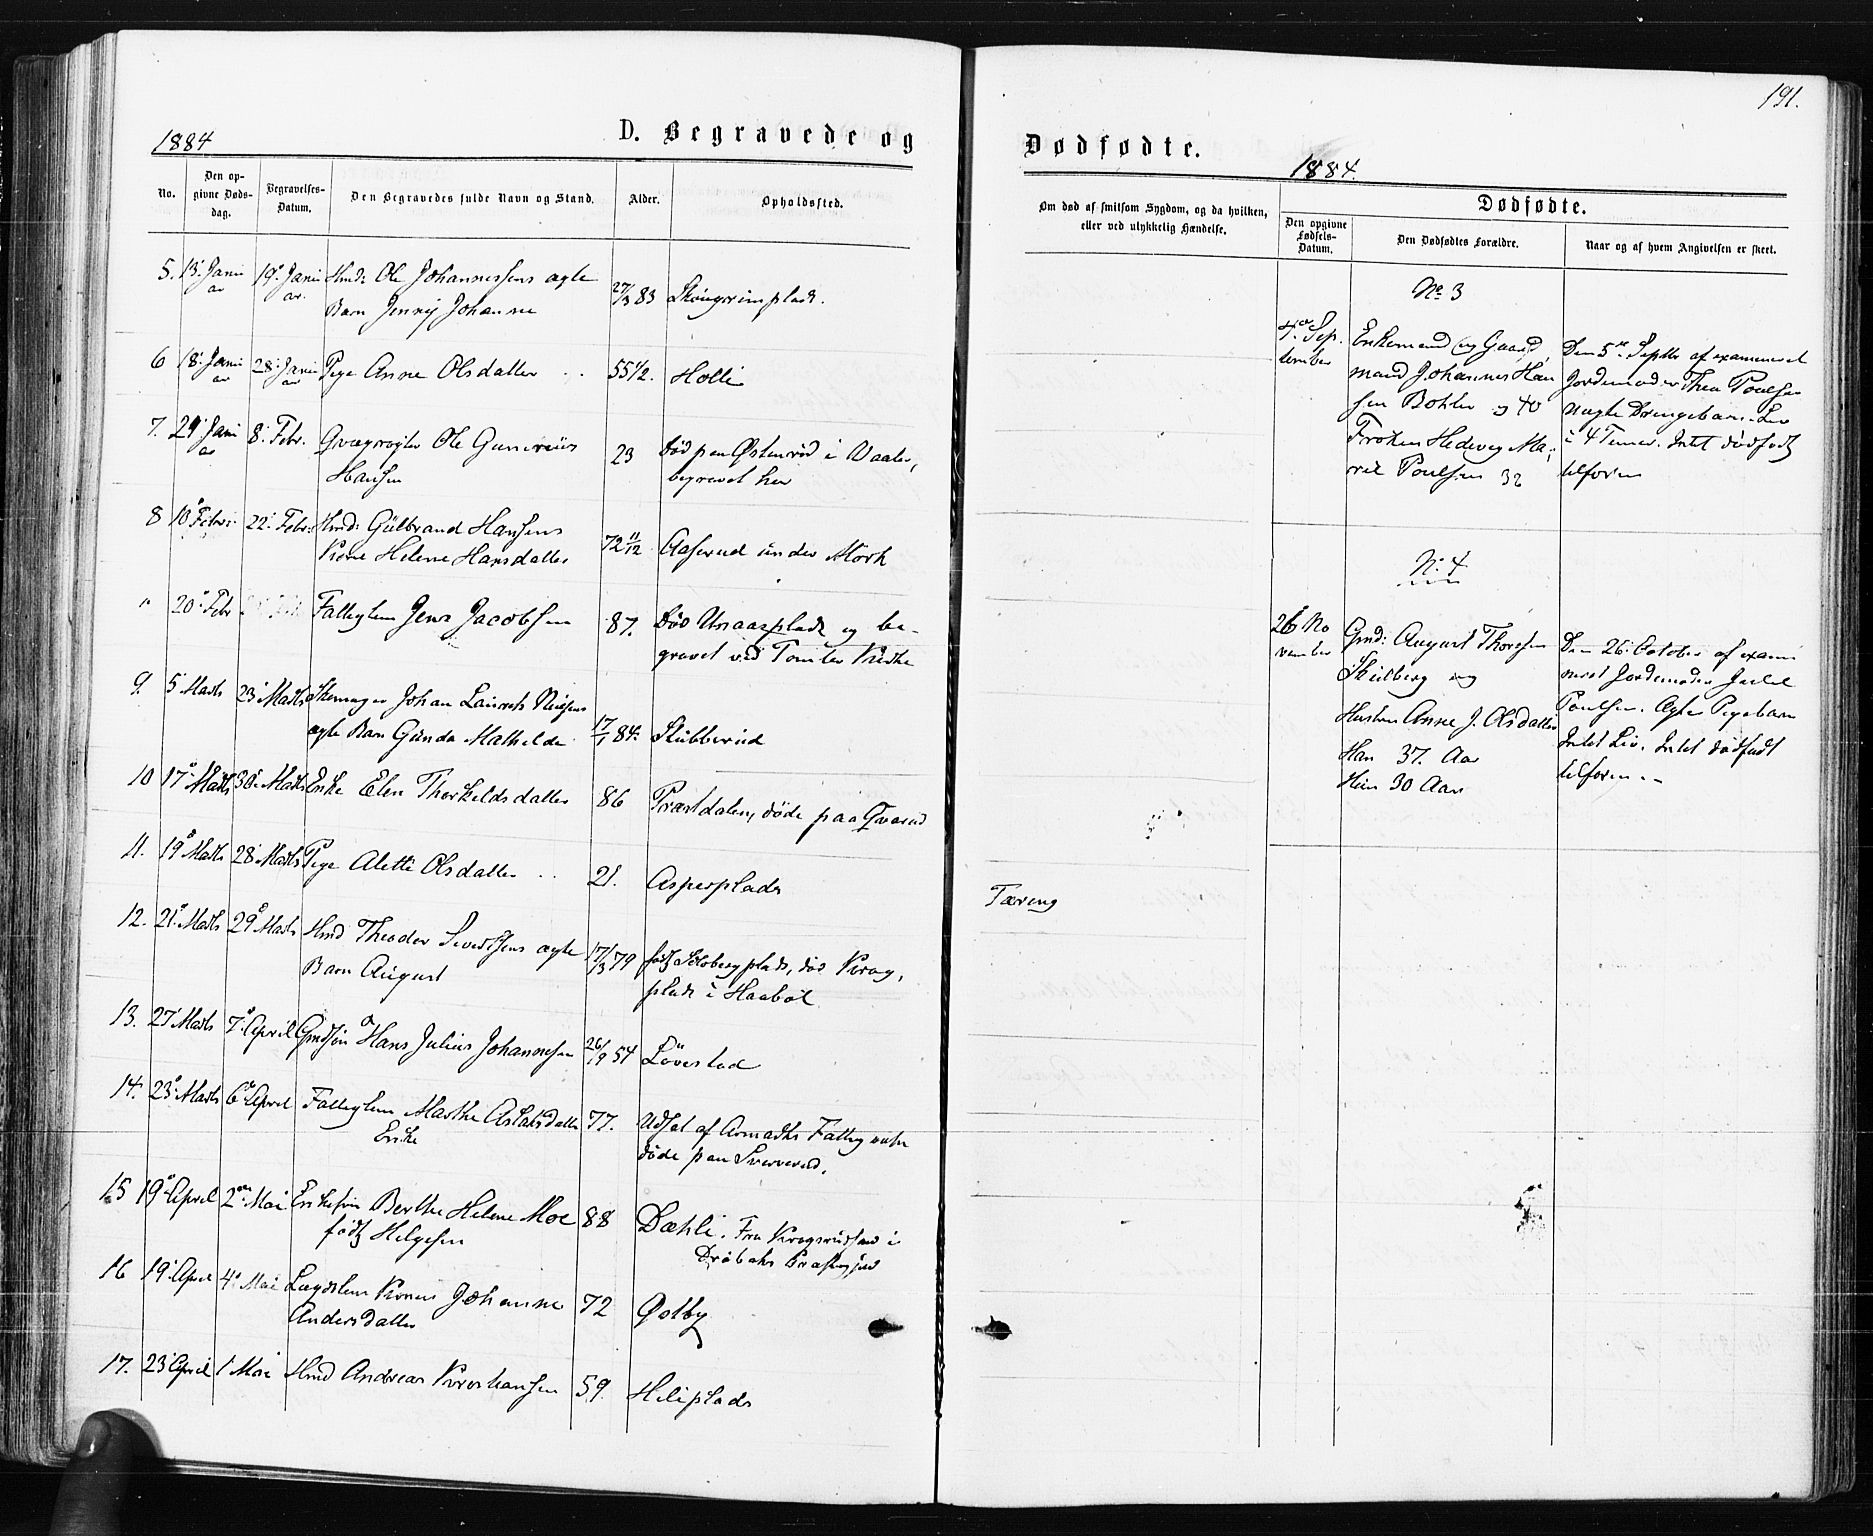 1884
D. Begravede og
No.
Den op-
givne Døds-
dag.
Begravelses-
Datum.
Den Begravedes fulde Navn og Stand.
Alder.
Opholdssted.
5. 13. Janu 19. Janu Hmd: Ole Johannessens ægte 27/3 83
ar ar. Barn Jenny Johanne
6 18. Janu 28. Janu Pige Anne Olsdatter 55 1/2. Holli
ar ar
7. 29. Janu 8. Febr. Ole Gunerius 23 død paa Østenrød i Vaaler,
ar Hansen begravet her
8 10. Febr. 22. Febr. Hmd: Gulbrand Hansens 72 11/12 Aaserud under Mörk
Kone Helene Hansdatter
" 20. Febr Fattiglem Jens Jacobsen 87. død og be-
gravet ved Tomter Kirke
9. 5. Marts 23. Marts Johan Laurits 17/1 84.
ægte Barn Gunda Mathilde Stubberud
10 17. Marts 30. Marts Enke Elen Thorkeldsdatter 86 Præstdalen, døde paa
11. 19. Marts 28. Marts Pige Alette Olsdatter 21. Aspesplads
12. 21. Marts 29. Marts Hmd Theodor Sivertsens ægte 17/3 79 født Solbergplads, død Krog,
Barn August plads i Haabøl
13. 27. Marts 7. April Gmdsøn Hans Julius Johannesen 26/9 54 Lövestad
14. 23. Marts 6. April Fattiglem Marthe Aslaksdatter 77. Udsat af Fattigvæsen
Enke døde paa
15 19. April 2. Mai Enkefru Berthe Helene Moe 88 Dæhli. Fra i
født Helgesen Drøbaks Præstegjeld
16 19. April 4. Mai Lægdslem Johanne 72 Østby
Andersdatter
17. 23. April 1. Mai Hmd Andreas 59. Heliplads
191.
Dødfødte.
1884.
Om død af smitsom Sygdom, og da hvilken,
eller ved ulykkelig Hændelse.
Dødfødte.
Den opgivne
Fødsels-
Datum.
Den Dødfødtes Forældre.
Naar og af hvem Angivelsen er skeet.
No 3
4. Sep-
tember
Enkemand og Gaard
mand Johannes Han
sen Bohler og 40
Frøken Hedevig Ma-
rie Poulsen 32
Den 5. Septbr af examineret
Jordemoder Thea Poulsen
uægte Drengebarn. Liv
i 4 Timer. Intet dødfødt
tilforn
No 4
26. No
vember
Gmd: August Thoresen
Skiberg og
Hustru Anne J. Olsdatter
Han 37. Aar
Hun 30 Aar
Den 26. October af exami
neret Jordemoder
Poulsen. Ægte Pigebarn
Intet Liv. Intet dødfødt
tilforn.
Tæring